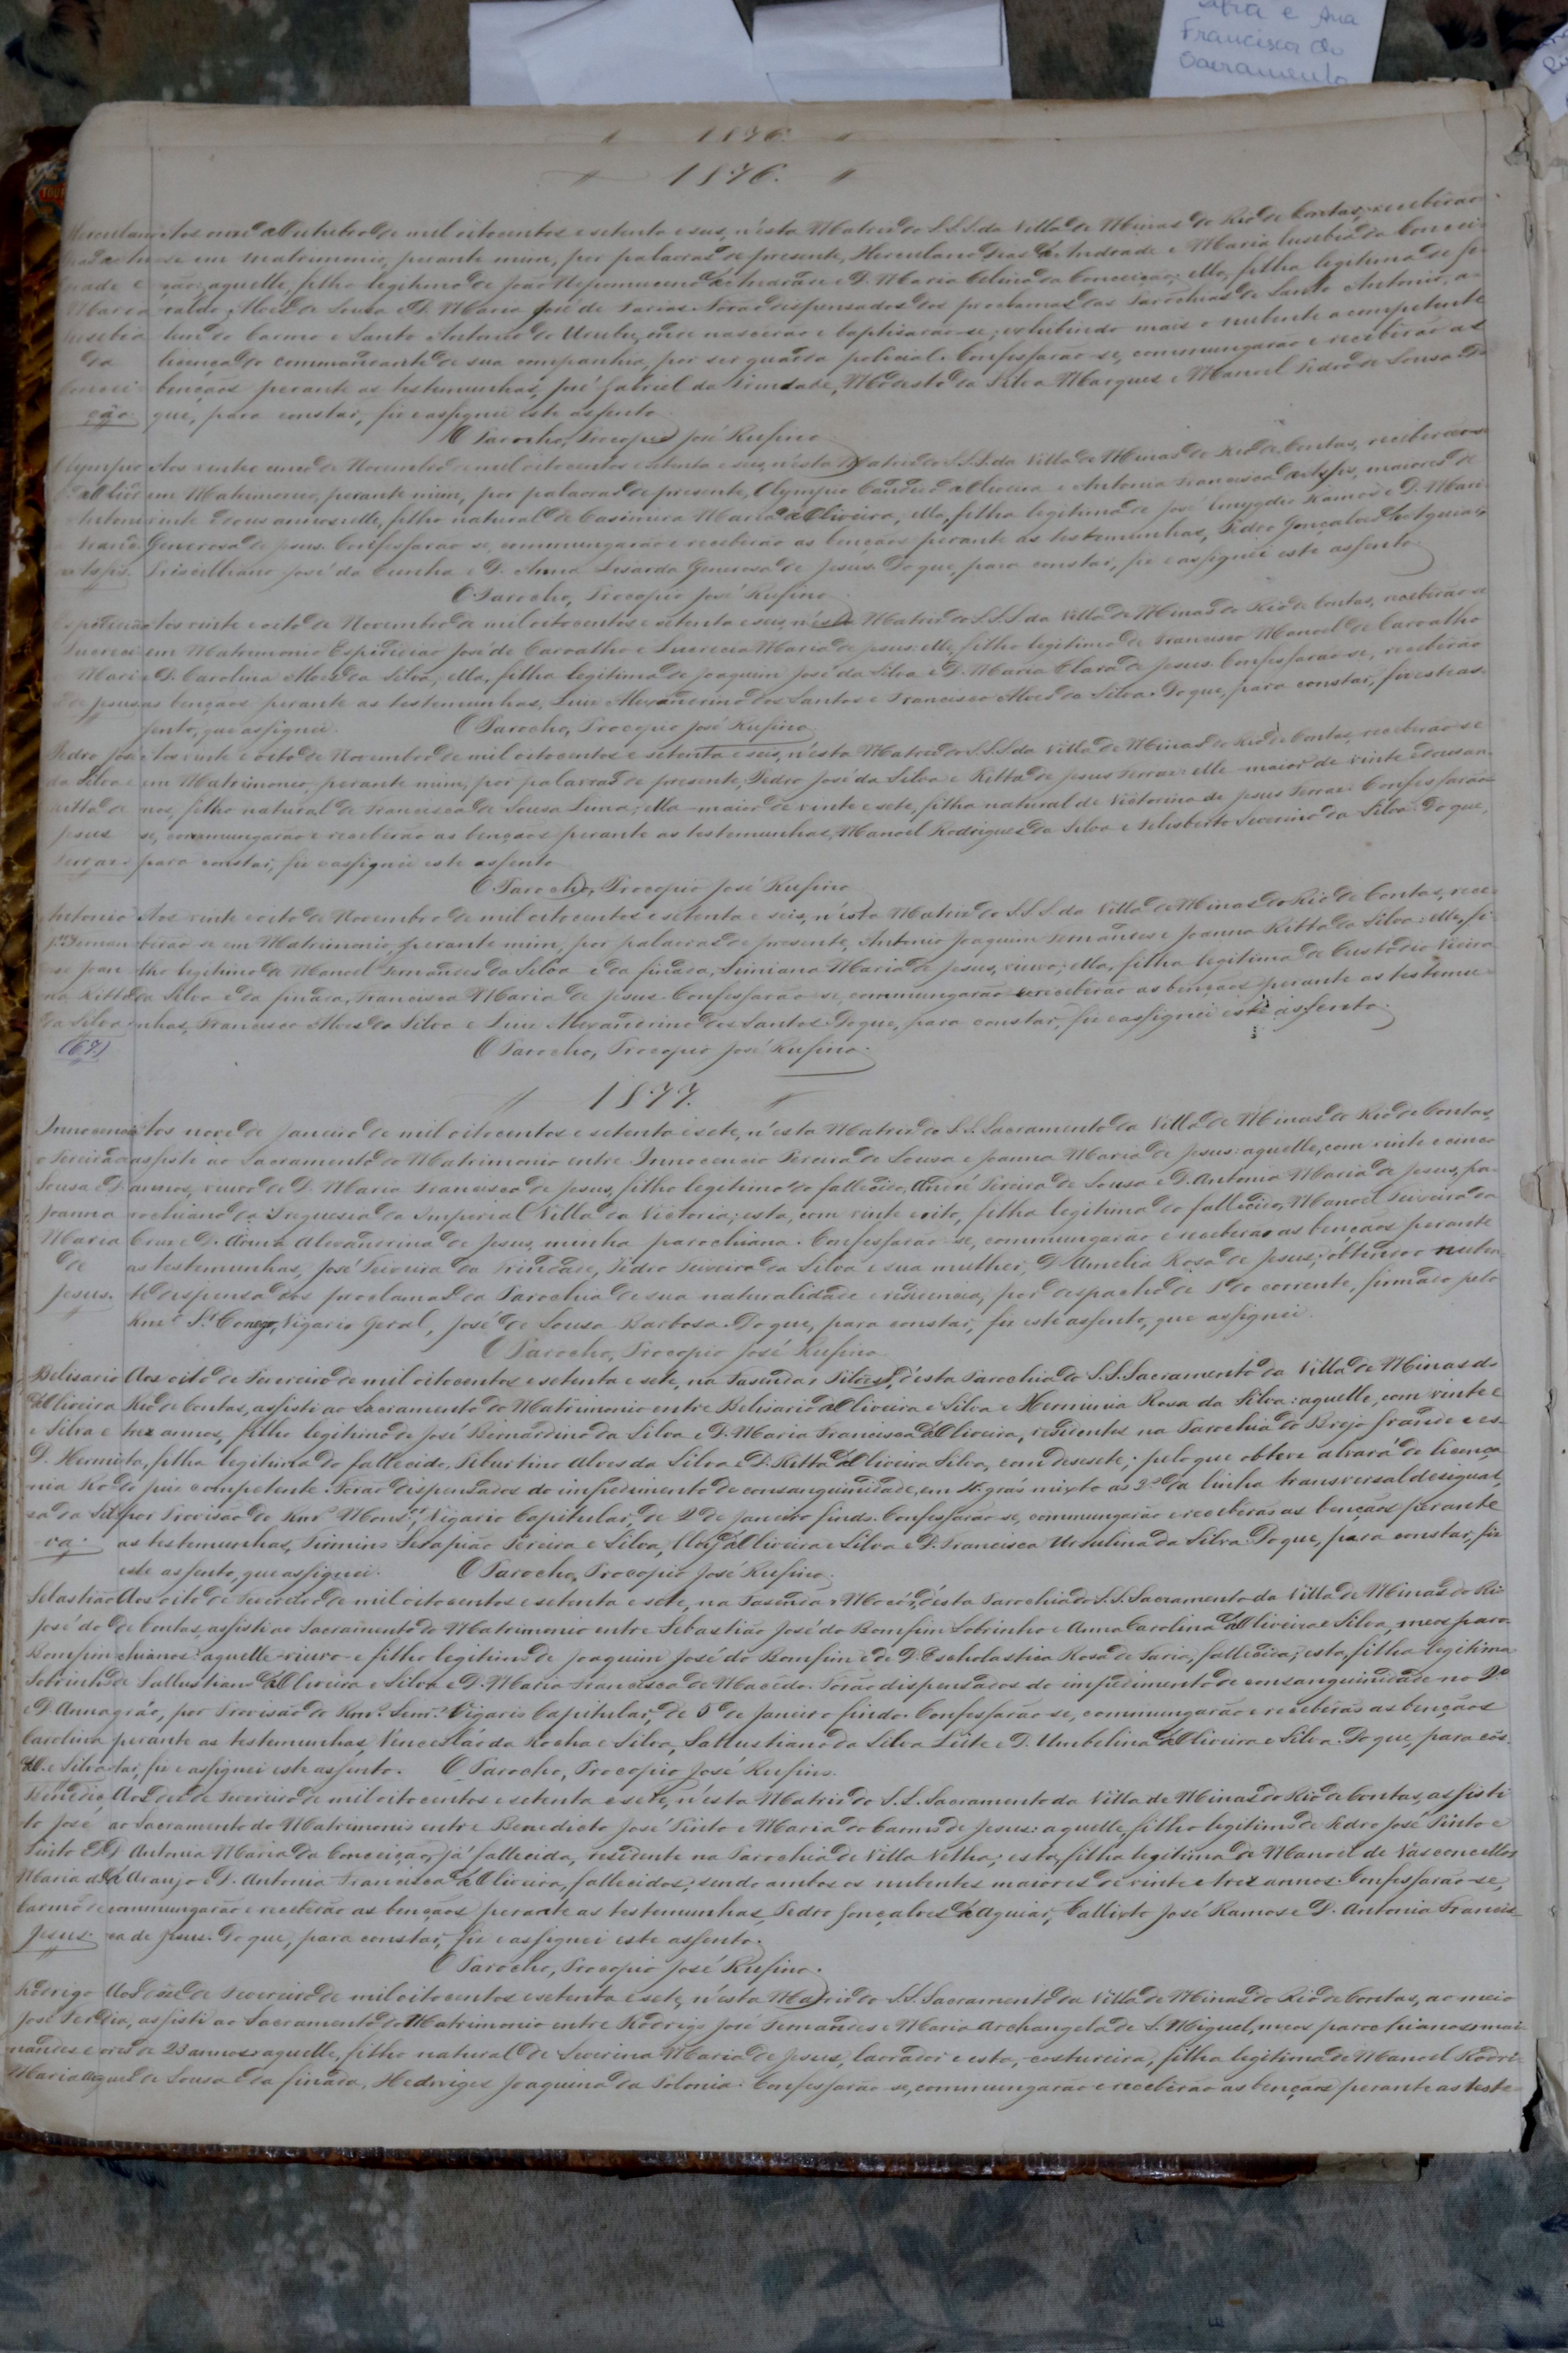 Francisca do
Sacramento
1876.
1876.
Aos onze d'Outubro de mil oitocentos e setenta e seis, n'esta Matriz do S.S.S. da Villa de Minas do Rio de Contas, receberão-
se em matrimonio, perante mim, por palavras de presente, Herculano Dias d'Andrade e Maria Eusebia da Concei-
ção: aquelle, filho legitimo de João Nepomuceno d'Andrade e D. Maria Celina da Conceição; ella, filha legitima de
Alves de Sousa e D. Maria José de Farias. Forão dispensados dos proclamas das Parochias de Santo Antonio,
do Carmo e Santo Antonio do Urubu, onde nascerão e baptisarão-se; exhibindo mais o nubente a competente
licença do commandante de sua companhia, por ser guarda policial. Confessarão-se, commungarão e receberão as
bençãos perante as testemunhas, José Gabriel da Trindade, Modesto da Silva Marques e Manoel Pedro de Sousa. Do
que, para constar, fiz e assignei este assento.
O Parocho, Procopio José Rufino
Aos vinte cinco de Novembro de mil oitocentos e setenta e seis, n'esta Matriz do S.S.S. da Villa de Minas do Rio de Contas, receberão-se
em Matrimonio, perante mim, por palavras de presente, Olympio Candido d'Oliveira e Antonia Francisca de Assis, maiores de
vinte e dous annos: elle, filho natural de Casimira Maria d'Oliveira; ella, filha legitima de José Emygdio Ramos e D. Maria
Generosa de Jesus. Confessarão-se, commungarão e receberão as bençãos perante as testemunhas, Pedro Gonçalves d'Aguiar,
Priscilliano José da Cunha e D. Anna Lisarda Generosa de Jesus. Do que, para constar, fiz e assignei este assento.
O Parocho, Procopio José Rufino
Aos vinte e oito de Novembro de mil oitocentos e setenta e seis, n'esta Matriz do S.S.S. da Villa de Minas do Rio de Contas, receberão-se
em Matrimonio Espiridião José de Carvalho e Lucrecia Maria de Jesus: elle, filho legitimo de Francisco Manoel de Carvalho
e D. Carolina Alves da Silva; ella, filha legitima de Joaquim José da Silva e D. Maria Clara de Jesus. Confessarão-se, receberão
as bençãos perante as testemunhas, Luiz Alexandrino dos Santos e Francisco Alves da Silva. Do que, para constar, fiz este as-
sento, que assignei. O Parocho, Procopio José Rufino
Pedro José Aos vinte e oito de Novembro de mil oitocentos e setenta e seis, n'esta Matriz do S.S.S. da Villa de Minas do Rio de Contas, receberão-se
da Silva e em Matrimonio, perante mim, por palavras de presente, Pedro José da Silva e Ritta de Jesus Ferraz: elle maior de vinte e dous an-
Ritta de nos, filho natural de Francisca de Sousa Luna; ella maior de vinte e sete, filha natural de Victorina de Jesus Ferraz. Confessarão-
Jesus se, commungarão e receberão as bençãos perante as testemunhas, Manoel Rodrigues da Silva e Felisberto Severino da Silva. Do que,
Ferraz. para constar, fiz e assignei este assento.
O Parocho, Procopio José Rufino
Antonio Aos vinte e oito de Novembro de mil oitocentos e setenta e seis, n'esta Matriz do S.S.S. da Villa de Minas do Rio de Contas, rece-
berão-se em Matrimonio, perante mim, por palavras de presente, Antonio Joaquim Fernandes e Joanna Ritta da Silva: elle, fi-
lho legitimo de Manoel Fernandes da Silva e da finada, Simiana Maria de Jesus, viuvo; ella, filha legitima de Custodio Vieira
na Ritta da Silva e da finada, Francisca Maria de Jesus. Confessarão-se, commungarão e receberão as bençãos perante as testemu-
da Silva nhas, Francisco Alves da Silva e Luiz Alexandrino dos Santos. Do que, para constar, fiz e assignei este assento.
(67) O Parocho, Procopio José Rufino.
1877.
Innocencio Aos nove de Janeiro de mil oitocentos e setenta e sete, n'esta Matriz do S.S. Sacramento da Villa de Minas do Rio de Contas,
Pereira de assisti ao Sacramento do Matrimonio entre Innocencio Pereira de Sousa e Joanna Maria de Jesus: aquelle, com vinte e cinco
Sousa e D. annos, viuvo de D. Maria Francisca de Jesus, filho legitimo do fallecido, André Pereira de Sousa e D. Antonia Maria de Jesus, pa-
Joanna rochiano da Freguesia da Imperial Villa da Victoria; esta, com vinte e oito, filha legitima do fallecido, Manoel Teixeira da
Maria Cruz e D. Anna Alexandrina de Jesus, minha parochiana. Confessarão-se, commungarão e receberão as bençãos perante
de as testemunhas, José Teixeira da Trindade, Pedro Teixeira da Silva e sua mulher, D. Amelia Rosa de Jesus; obtendo o nuben-
Jesus. te dispensa dos proclamas da Parochia de sua naturalidade e residencia, por despacho de 1º do corrente, firmado pelo
Rmº Sr Conego, Vigario Geral, José de Sousa Barbosa. Do que, para constar, fiz este assento, que assignei.
O Parocho, Procopio José Rufino
Belisario Aos oito de Fevereiro de mil oitocentos e setenta e sete, na Fasenda, Silves, d'esta Parochia do S.S. Sacramento da Villa de Minas do
d'Oliveira Rio de Contas, assisti ao Sacramento do Matrimonio entre Belisario d'Oliveira e Silva e Herminia Rosa da Silva: aquelle, com vinte e
e Silva e trez annos, filho legitimo de José Bernardino da Silva e D. Maria Francisca d'Oliveira, residentes na Parochia do Brejo Grande e es-
D. Hermi- ta, filha legitima do fallecido, Tiburtino Alves da Silva e D. Ritta d'Oliveira Silva, com desesete; pelo que obteve alvará de licença
nia Ro- do juiz competente. Forão dispensados do impedimento de consanguinidade, em 4º gráo mixto ao 2º da linha transversal desigual,
sa da Sil- por Provisão do Rmº Monsr. Vigario Capitular, de 2 de Janeiro findo. Confessarão-se, commungarão e receberão as bençãos perante
va. as testemunhas, Firmino Serapião Pereira e Silva, Eloy d'Oliveira e Silva e D. Francisca Ursulina da Silva. Do que, para constar, fiz
este assento, que assignei. O Parocho, Procopio José Rufino.
Sebastião Aos oito de Fevereiro de mil oitocentos e setenta e sete, na Fasenda, Mocó, d'esta Parochia do S.S. Sacramento da Villa de Minas do Rio
José do de Contas, assisti ao Sacramento do Matrimonio entre Sebastião José do Bomfim Sobrinho e Anna Carolina d'Oliveira e Silva, meos paro-
Bomfim chianos: aquelle viuvo e filho legitimo de Joaquim José do Bomfim e de D. Escholastica Rosa de Faria, fallecida; esta, filha legitima
Sobrinho de Sallustiano d'Oliveira e Silva e D. Maria Francisca de Macedo. Forão dispensados do impedimento de consanguinidade no 2º
e D. Anna gráo, por Provisão do Rmº Senr. Vigario Capitular, de 5 de Janeiro findo. Confessarão-se, commungarão e receberão as bençãos
Carolina perante as testemunhas, Vencesláo da Rocha e Silva, Sallustiano da Silva Leite e D. Umbelina d'Oliveira e Silva. Do que, para cons-
d'O. e Silva tar, fiz e assignei este assento. O Parocho, Procopio José Rufino.
Benedic- Aos dez de Fevereiro de mil oitocentos e setenta e sete, n'esta Matriz do S.S. Sacramento da Villa de Minas do Rio de Contas, assisti
to José ao Sacramento do Matrimonio entre Benedicto José Pinto e Maria do Carmo de Jesus: aquelle, filho legitimo de Pedro José Pinto e
Pinto e D. Antonia Maria da Conceição, já fallecida, residente na Parochia de Villa Velha; esta, filha legitima de Manoel de Vasconcellos
Maria do d'Araujo e D. Antonia Francisca d'Oliveira, fallecidos; sendo ambos os nubentes maiores de vinte e trez annos. Confessarão-se,
Carmo de commungarão e receberão as bençãos perante as testemunhas, Pedro Gonçalves d'Aguiar, Callixto José Ramos e D. Antonia Francis-
Jesus. ca de Jesus. Do que, para constar, fiz e assignei este assento.
O Parocho, Procopio José Rufino.
Rodrigo Aos de Fevereiro de mil oitocentos e setenta e sete, n'esta Matriz do S.S. Sacramento da Villa de Minas do Rio de Contas, ao meio
José Fer- dia, assisti ao Sacramento do Matrimonio entre Rodrigo José Fernandes e Maria Archangela de S. Miguel, meos parochianos, mai-
nandes e ores de 23 annos: aquelle, filho natural de Severina Maria de Jesus, lavrador e esta, costureira, filha legitima de Manoel Rodri-
Maria gues de Sousa e da finada, Hedwiges Joaquina da Polonia. Confessarão-se, commungarão e receberão as bençãos perante as teste-